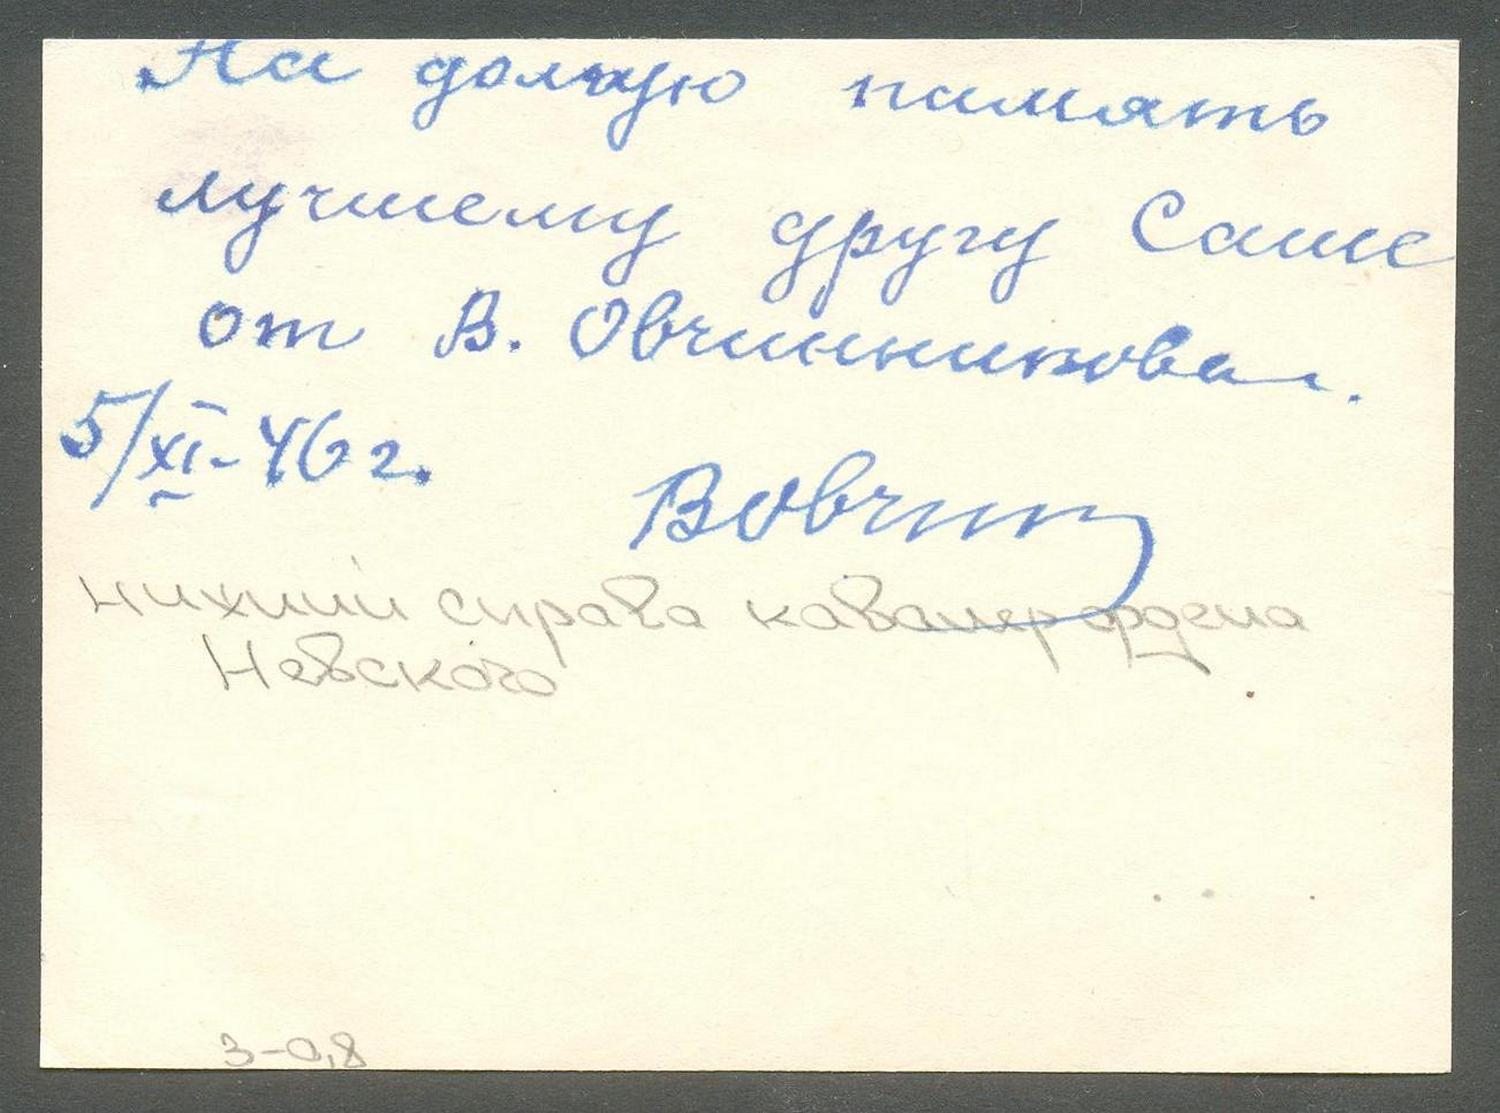 На долгую память
лучшему другу Саше
от В. Овчинникова.
5/XI-46 г.
ВОвчин
нижний справа кавалер ордена
Невского
3-0,8